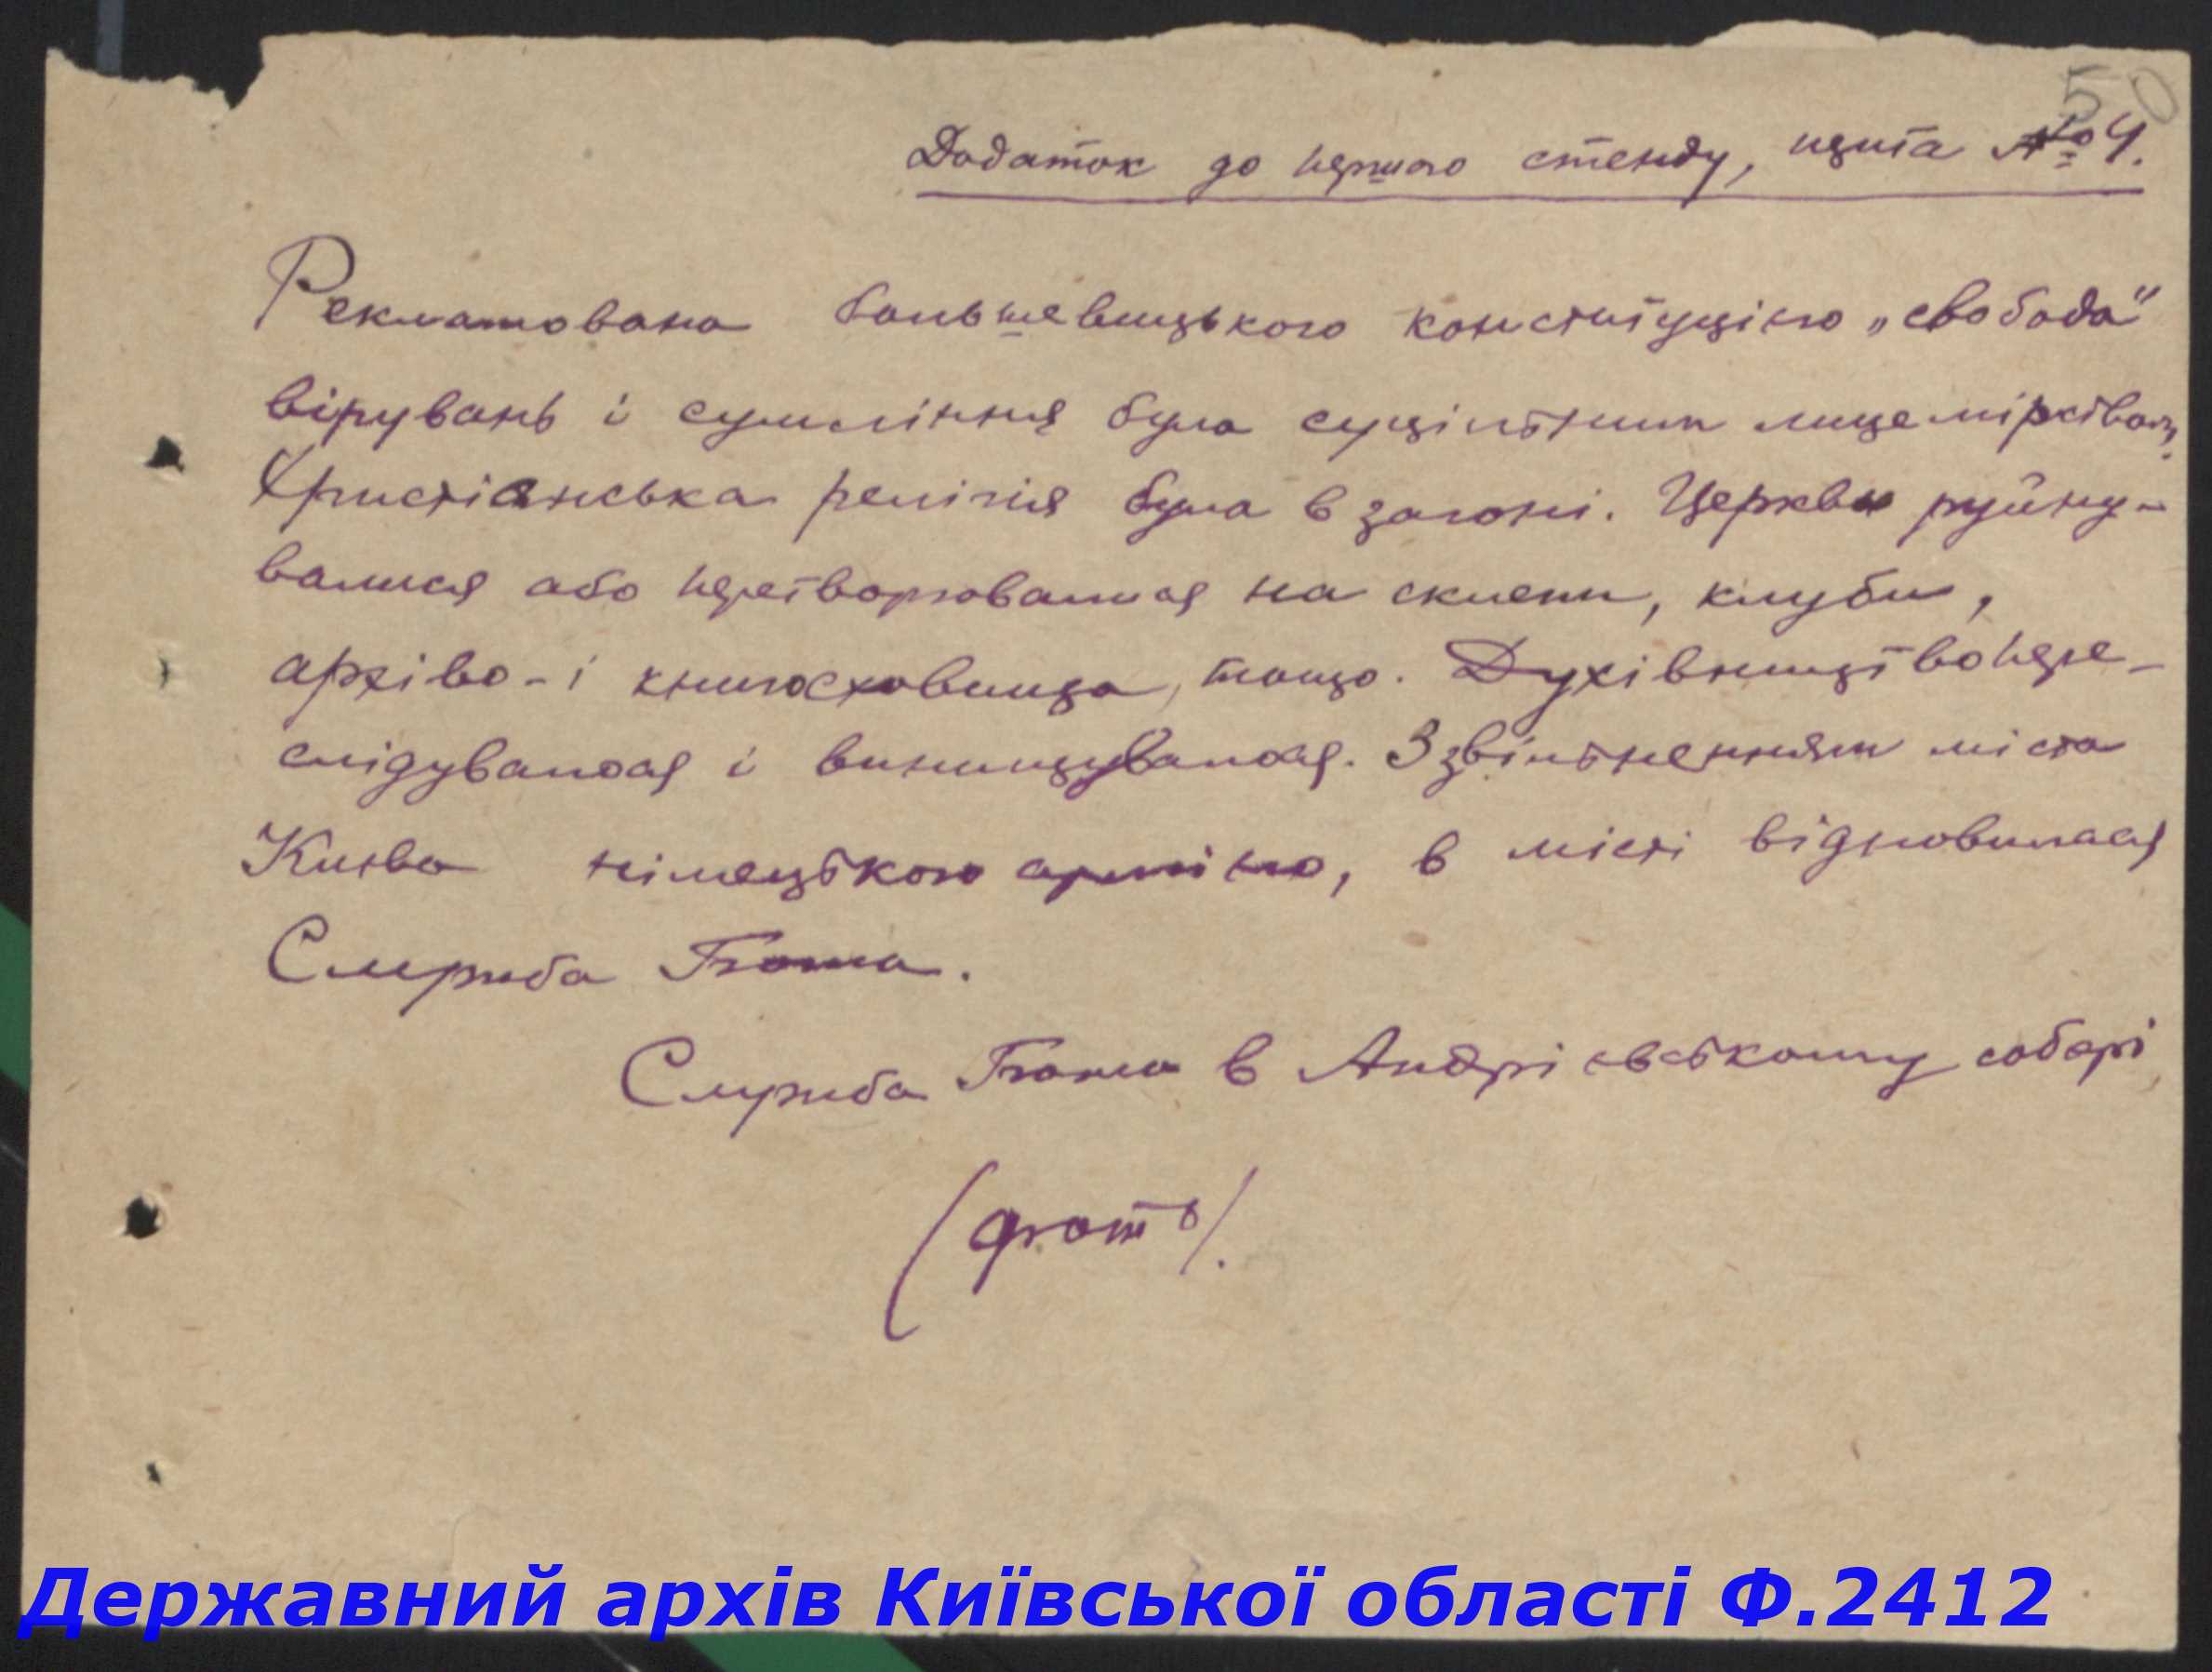 50
Додаток до першого стенду, щита № 4.
Рекламована большевицькою конституцією „свобода"
вірувань і сумління була суцільним лицемірством.
Християнська релігія була в загоні. Церкви руйну-
валися або перетворювалися на склепи, клуби,
архіво- і книгосховища, тощо. Духівництво пере-
слідувалося і винищувалося. З звільненням міста
Києва німецькою армією, в місті відновилася
Служба Божа.
Служба Божа в Андріївському соборі
(фото).
Державний архів Київської області Ф.2412